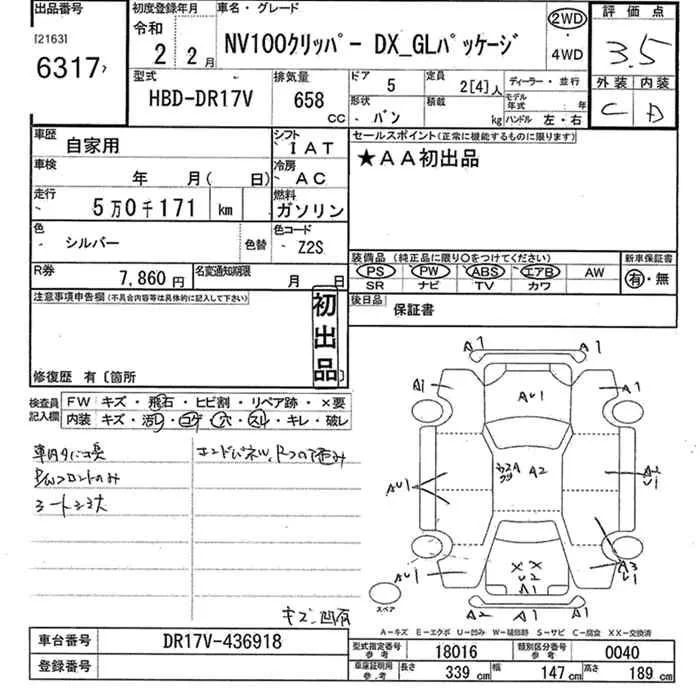 出品番号
[2163]
6317
初度登録年月
令和
2 2月
車名・グレード
NV100クリッパー DX_GLパッケージ
2WD
・
4WD
評価点
3.5
外装 内装
C D
型式
HBD-DR17V
排気量
658
CC
ドア 5
定員 2[4]人
ディーラー・並行
形状 バン
積載 kg
モデル年式 : 年
ハンドル 左・右
車歴 自家用
シフト IAT
セールスポイント(正常に機能するものに限ります)
★AA初出品
車検 年 月( 日)
冷房 AC
走行 5万0千171 km
燃料 ガソリン
色 シルバー 色替
色コード Z2S
装備品 (純正品に限り○をつけてください)
PS PW ABS エアB AW
SR ナビ TV カワ
新車保証書
有・無
R券 7,860円
名変通知期限 月 日
後日品 保証書
注意事項申告欄(不具合内容等は具体的に記入して下さい)
初出品
修復歴 有〔箇所 〕
検査員記入欄
FW キズ・飛石・ヒビ割・リペア跡・×要
内装 キズ・汚レ・コゲ・穴・スレ・キレ・破レ
車内タバコ臭
エンドパネル、Rフロア歪み
PWフロントのみ
キズ、凹有
A1 A1
A1 AU1 A1
A2
AU1
A2 U1
AU1
XX
U2
A1
A3 U1
A2 A1 A1
スペア
A-キズ E-エクボ U-凹み W-補修跡 S-サビ C-腐食 XX-交換済
車台番号 DR17V-436918
登録番号
型式指定番号参考 18016
類別区分番号参考 0040
車庫証明用参考 長さ 339cm 幅 147cm 高さ 189cm